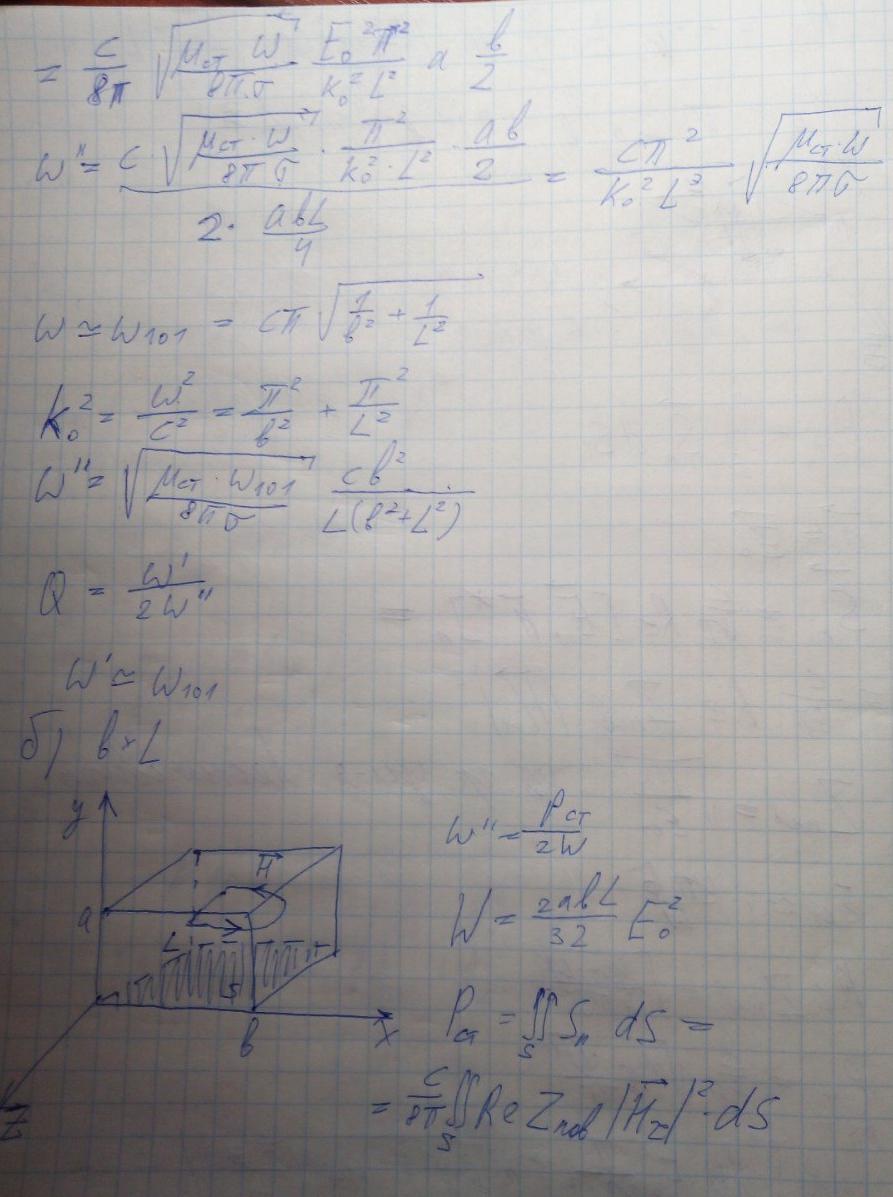 = c/8π √(μст·ω/8πσ) E₀²π²/k₀²L² a b/2
ω'' = (c √(μст·ω/8πσ) · π²/k₀²·L² · ab/2) / (2· abL/4) = cπ²/k₀²L³ √(μст·ω/8πσ)
ω ≃ ω₁₀₁ = cπ √(1/b² + 1/L²)
k₀² = ω²/c² = π²/b² + π²/L²
ω'' = √(μст·ω₁₀₁/8πσ) cb²/L(b²+L²)
Q = ω'/2ω''
ω' ≃ ω₁₀₁
б) b×L
y
H
a
L
S
b
x
z
ω'' = Pст/2W
W = 2abL/32 E₀²
Pст = ∬s Sn dS =
= c/8π ∬s Re Zпов |Hτ|²·dS